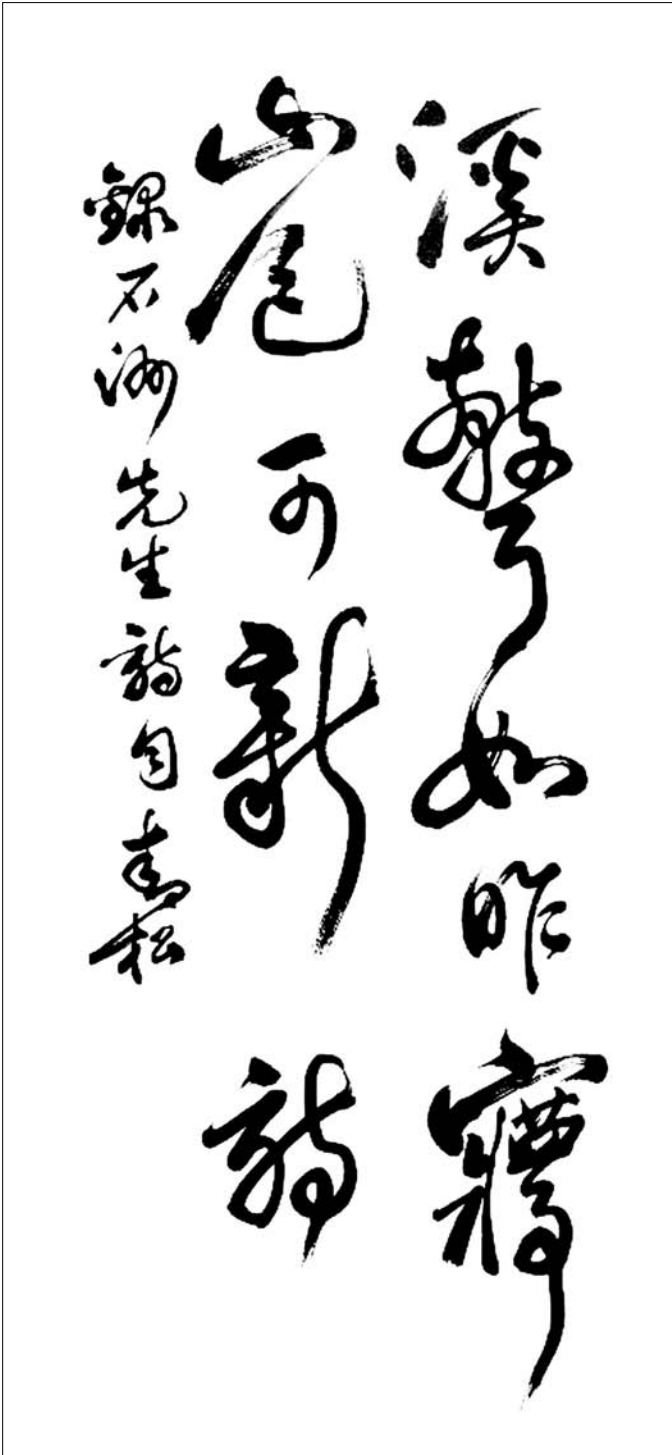 溪聲如昨㝱
山色可新詩
錄石洲先生詩句青松